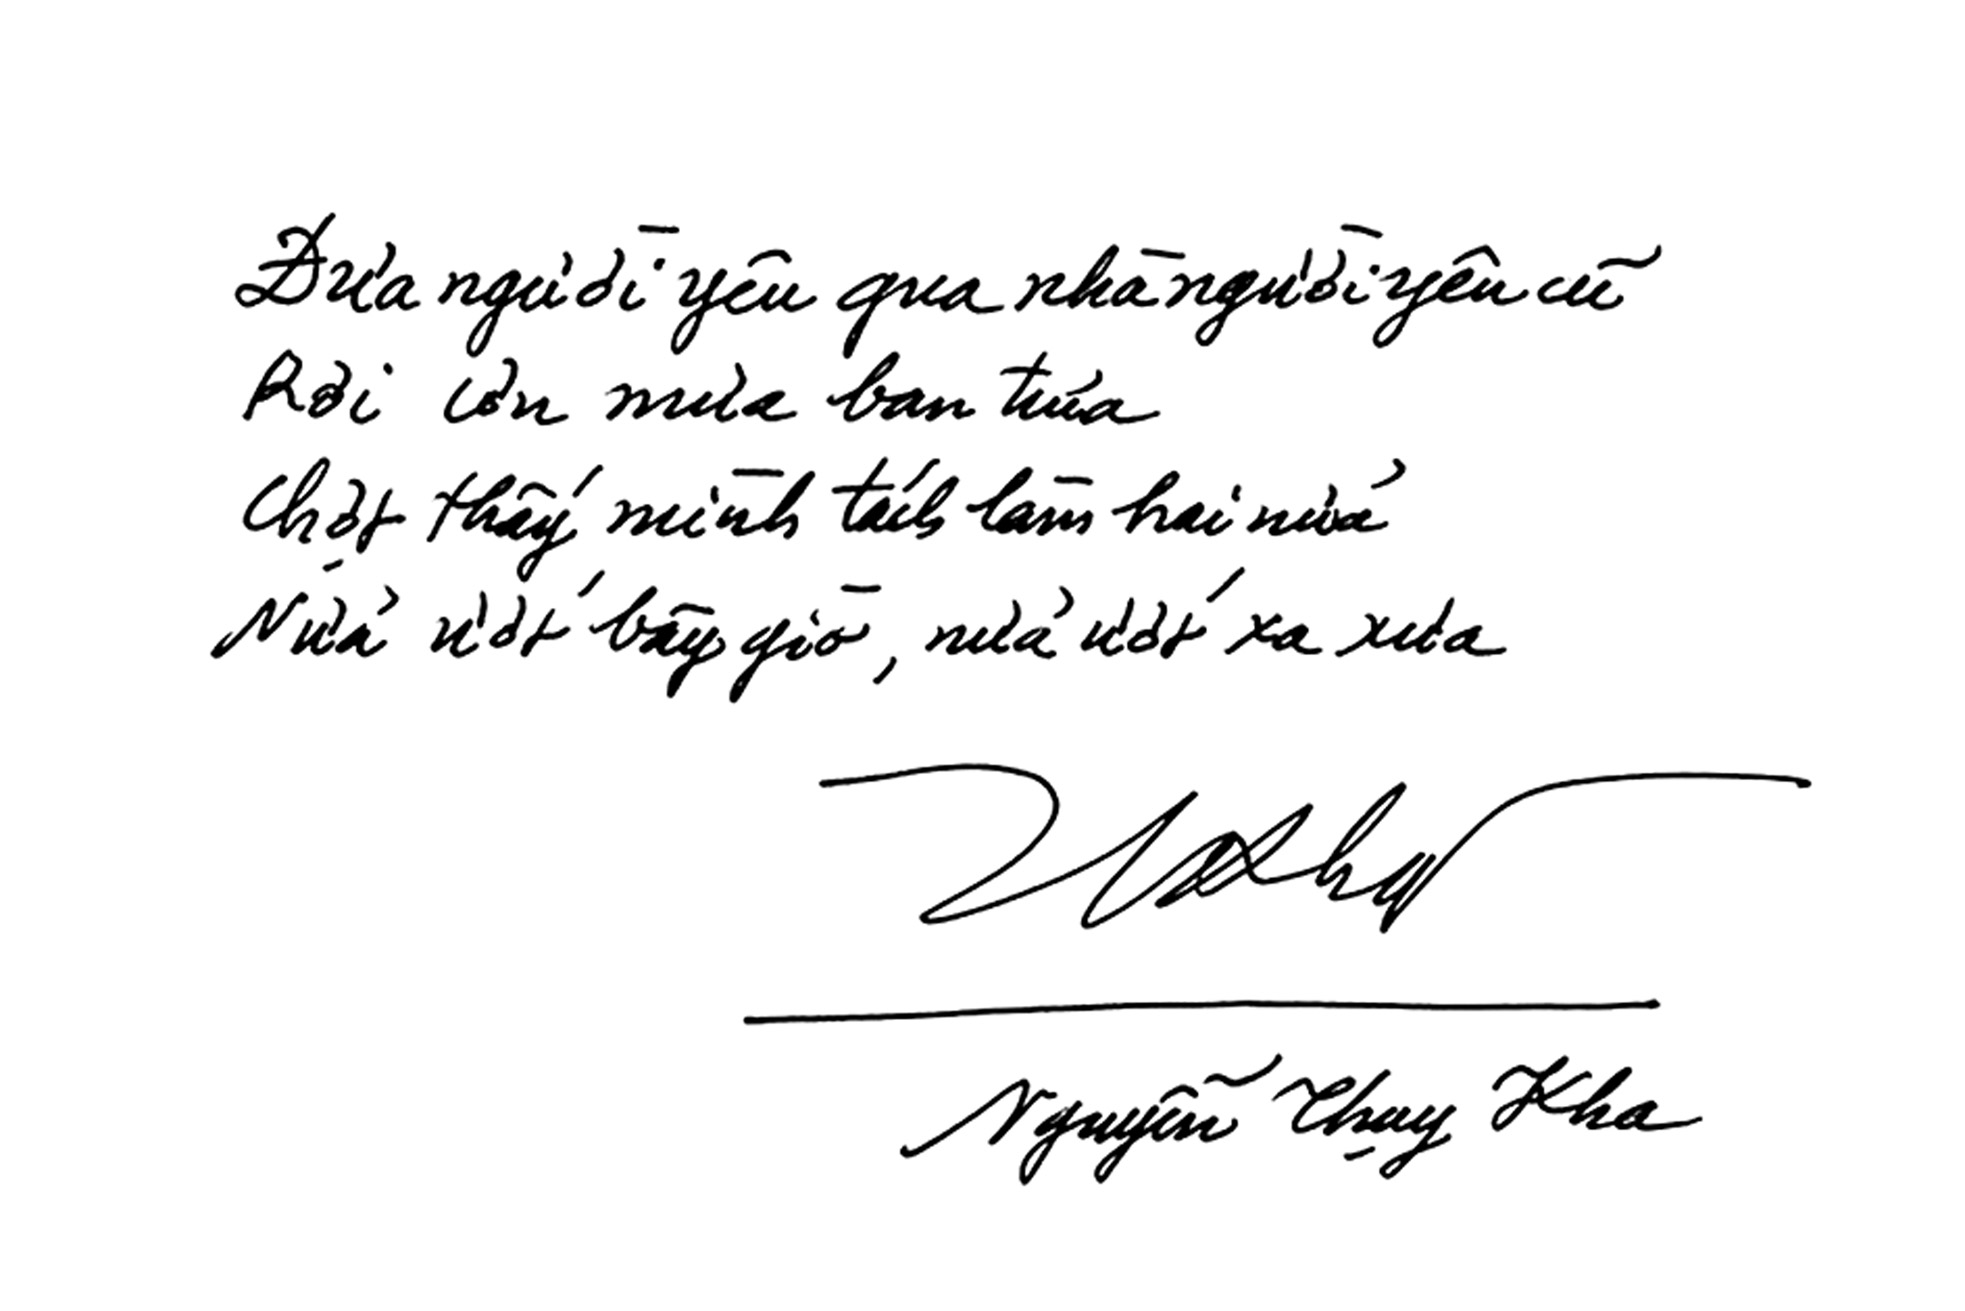 Đưa người yêu qua nhà người yêu cũ
Rơi cơn mưa ban trưa
Chợt thấy mình tách làm hai nửa
Nửa ướt bây giờ, nửa ướt xa xưa
Nguyễn Thụy Kha